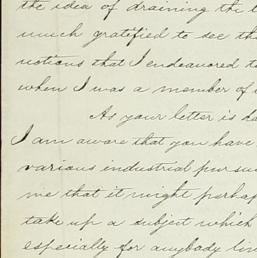 the idea of draining the
much gratified to see th
notions that I endeavored t
when I was a member of
As your letter is da
I am aware that you have
various industrial pursu
me that it might perhap
take up a subject which
especially for anybody